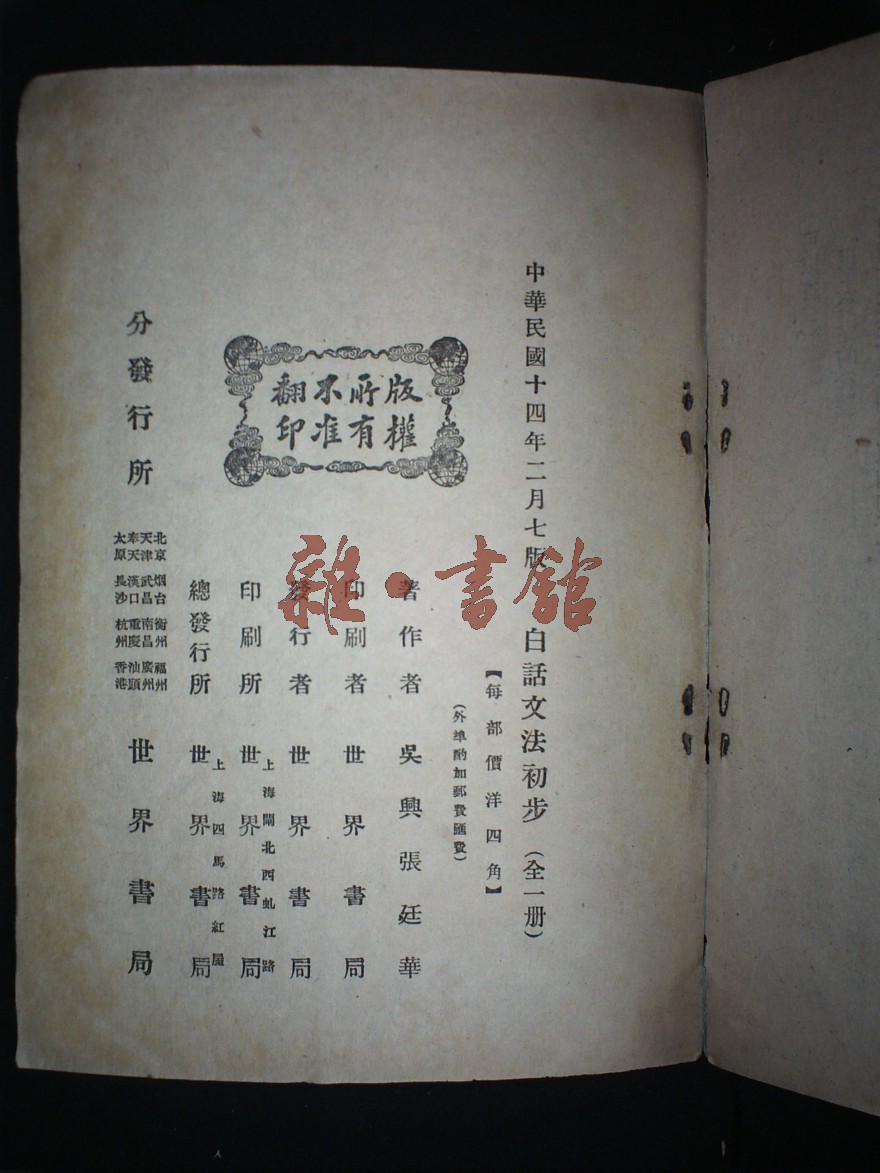 中華民國十四年二月七版
白話文法初步（全一册）
【每部價洋四角】
（外埠酌加郵費匯費）
版權
所有
不准
翻印
著作者 吳興張廷華
印刷者 世界書局
發行者 世界書局
上海閘北西虬江路
印刷所 世界書局
上海四馬路紅屋
總發行所 世界書局
分發行所
北京 烟台 衡州 福州
天津 武昌 南昌 廣州
奉天 漢口 重慶 汕頭
太原 長沙 杭州 香港
世界書局
雜·書館